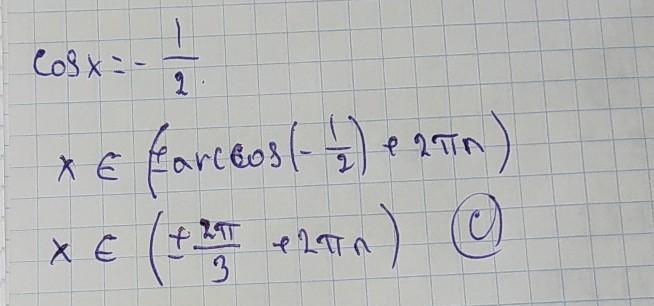 cos x = - 1/2.
x ∈ (± arccos(- 1/2) + 2πn)
x ∈ (± 2π/3 + 2πn) C